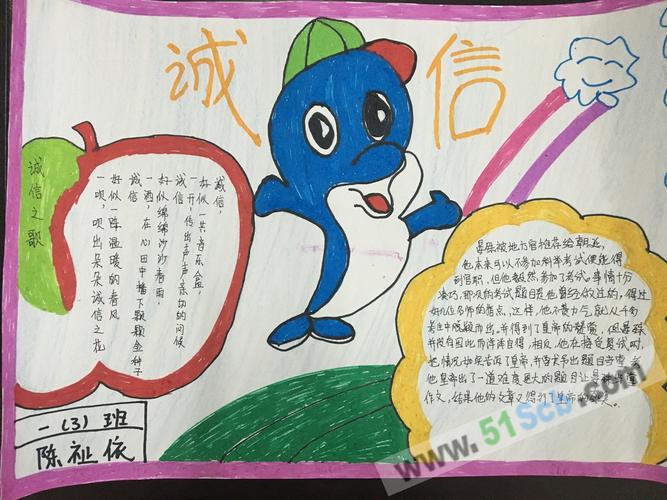 诚信
诚信之歌
诚信,
好似一共音乐盒,
一开,传出声声亲切的问候
诚信
好似绵绵沙沙春雨,
一洒,在心田中播下颗颗金种子
诚信
好似一阵温暖的春风
一吹,吹出朵朵诚信之花
晏殊被地方官推荐给朝廷,
他本来可以不参加科举考试便能得
到官职,但他毅然参加了考试。事情十分
凑巧,那次的考试题目是他曾经做过的,得过
好几位名师的指点,这样,他不费力气,就从千多
考生中脱颖而出,并得到了皇帝的赞赏,但晏殊
并没有因此而洋洋自得,相反,他在接受复试时,
把情况如实告诉了皇帝,并要求另出题目当堂考
他皇帝出了一道难度更大的题目让晏殊当堂
作文,结果他的文章又得到了皇帝的
一(3)班
陈祉依
www.51Scb.com